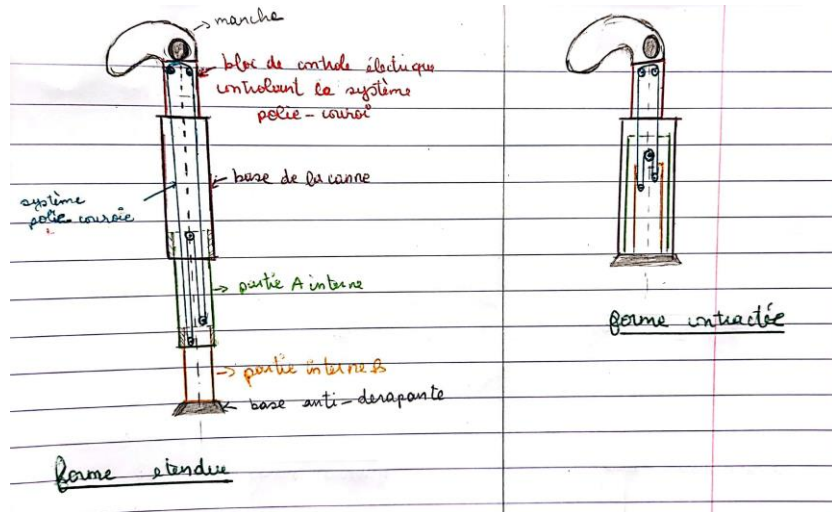 manche
bloc de controle électrique
controlant le système
polie-couroi
système
polie couroie
base de la canne
partie A interne
partie interne B
base anti-derapante
forme etendue
forme contractée